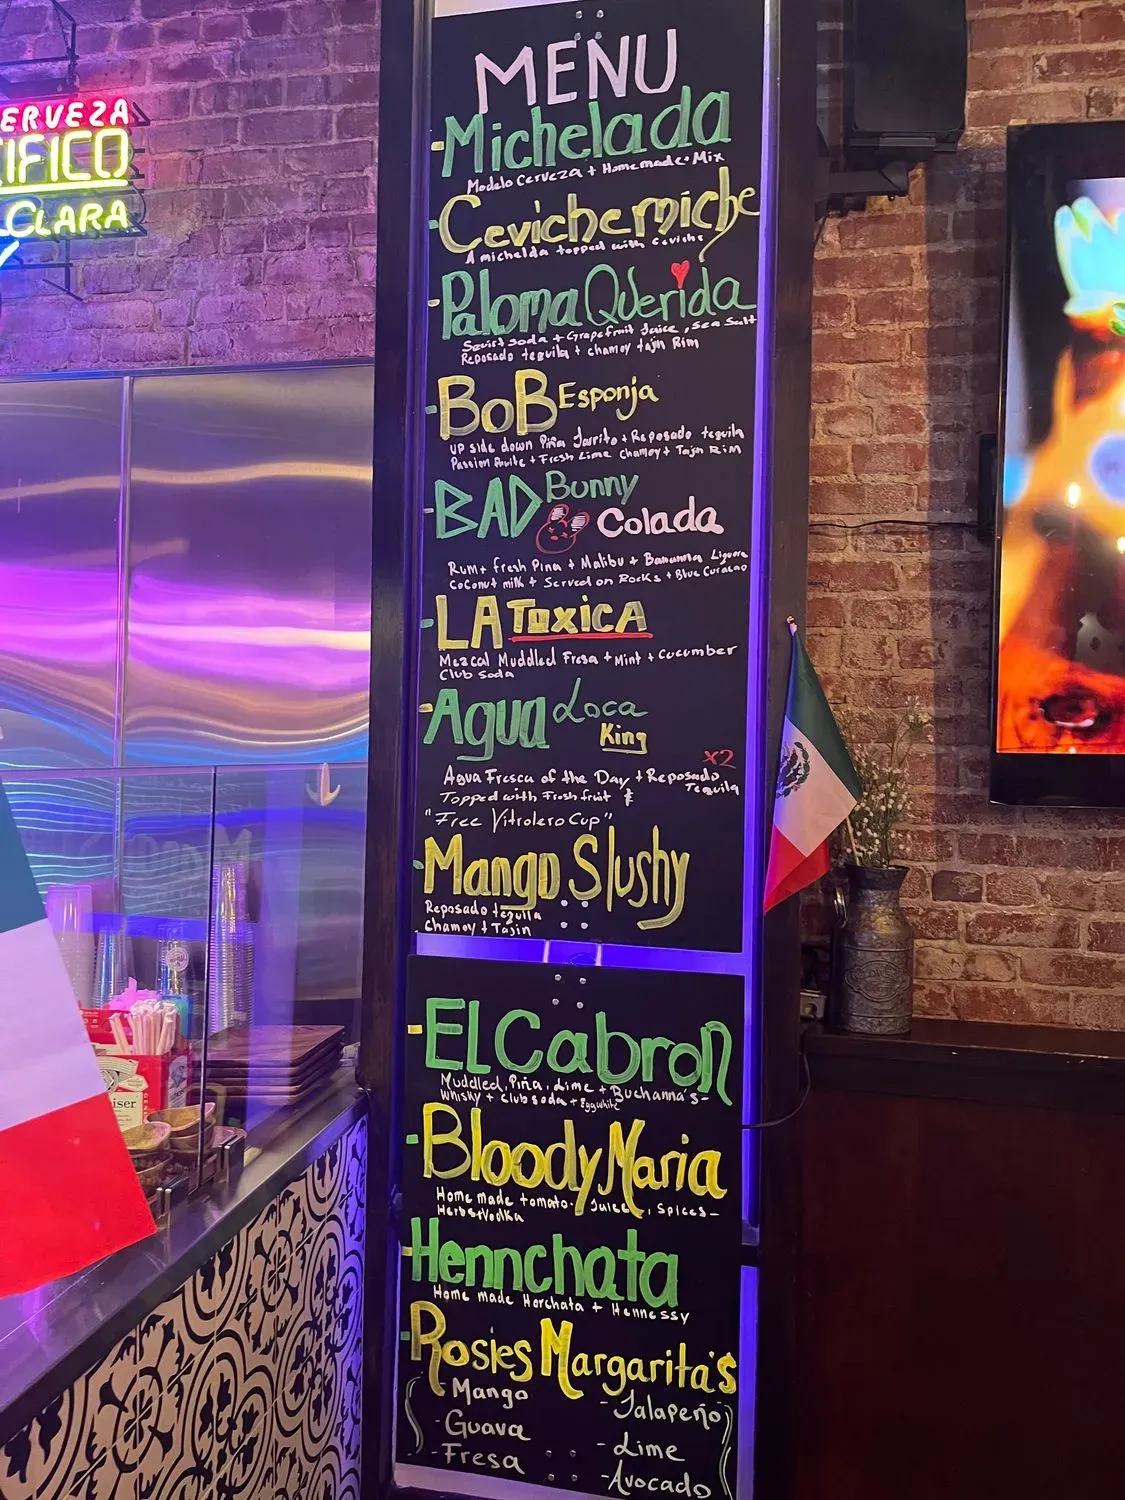 CERVEZA
IFICO
CLARA
MENU
Michelada
Modelo Cerveza + Homemade Mix
Cevichemiche
A michelda topped with Ceviche
Paloma Querida
Squirt soda + Grapefruit Juice, Sea Salt
Reposado tequila + chamoy tajin Rim
BoB Esponja
UP side down Piña Jarrito + Reposado tequila
Passion fruite + Fresh Lime Chamoy + Tajin RiM
BAD Bunny
Colada
Rum + fresh Pina + Malibu + Bananna Liquore
Coconut milk + Served on Rocks + Blue Curacao
LA ToxicA
Mezcal Muddled Fresa + Mint + Cucumber
Club soda
Agua Loca
King
x2
Agua Fresca of the Day + Reposado
Tequila
Topped with Fresh fruit &
"Free Vitrolero Cup"
Mango Slushy
Reposado tequila
Chamoy + Tajin
EL Cabron
Muddled, Piña, Lime + Buchanna's-
Whisky + Club soda + Eggwhite
Bloody Maria
Home made tomato. Juice, Spices-
Herbs+Vodka
Hennchata
Home made Horchata + Hennessy
Rosies Margarita's
-Mango
-Guava
-Fresa
-Jalapeño
-Lime
-Avocado
iser